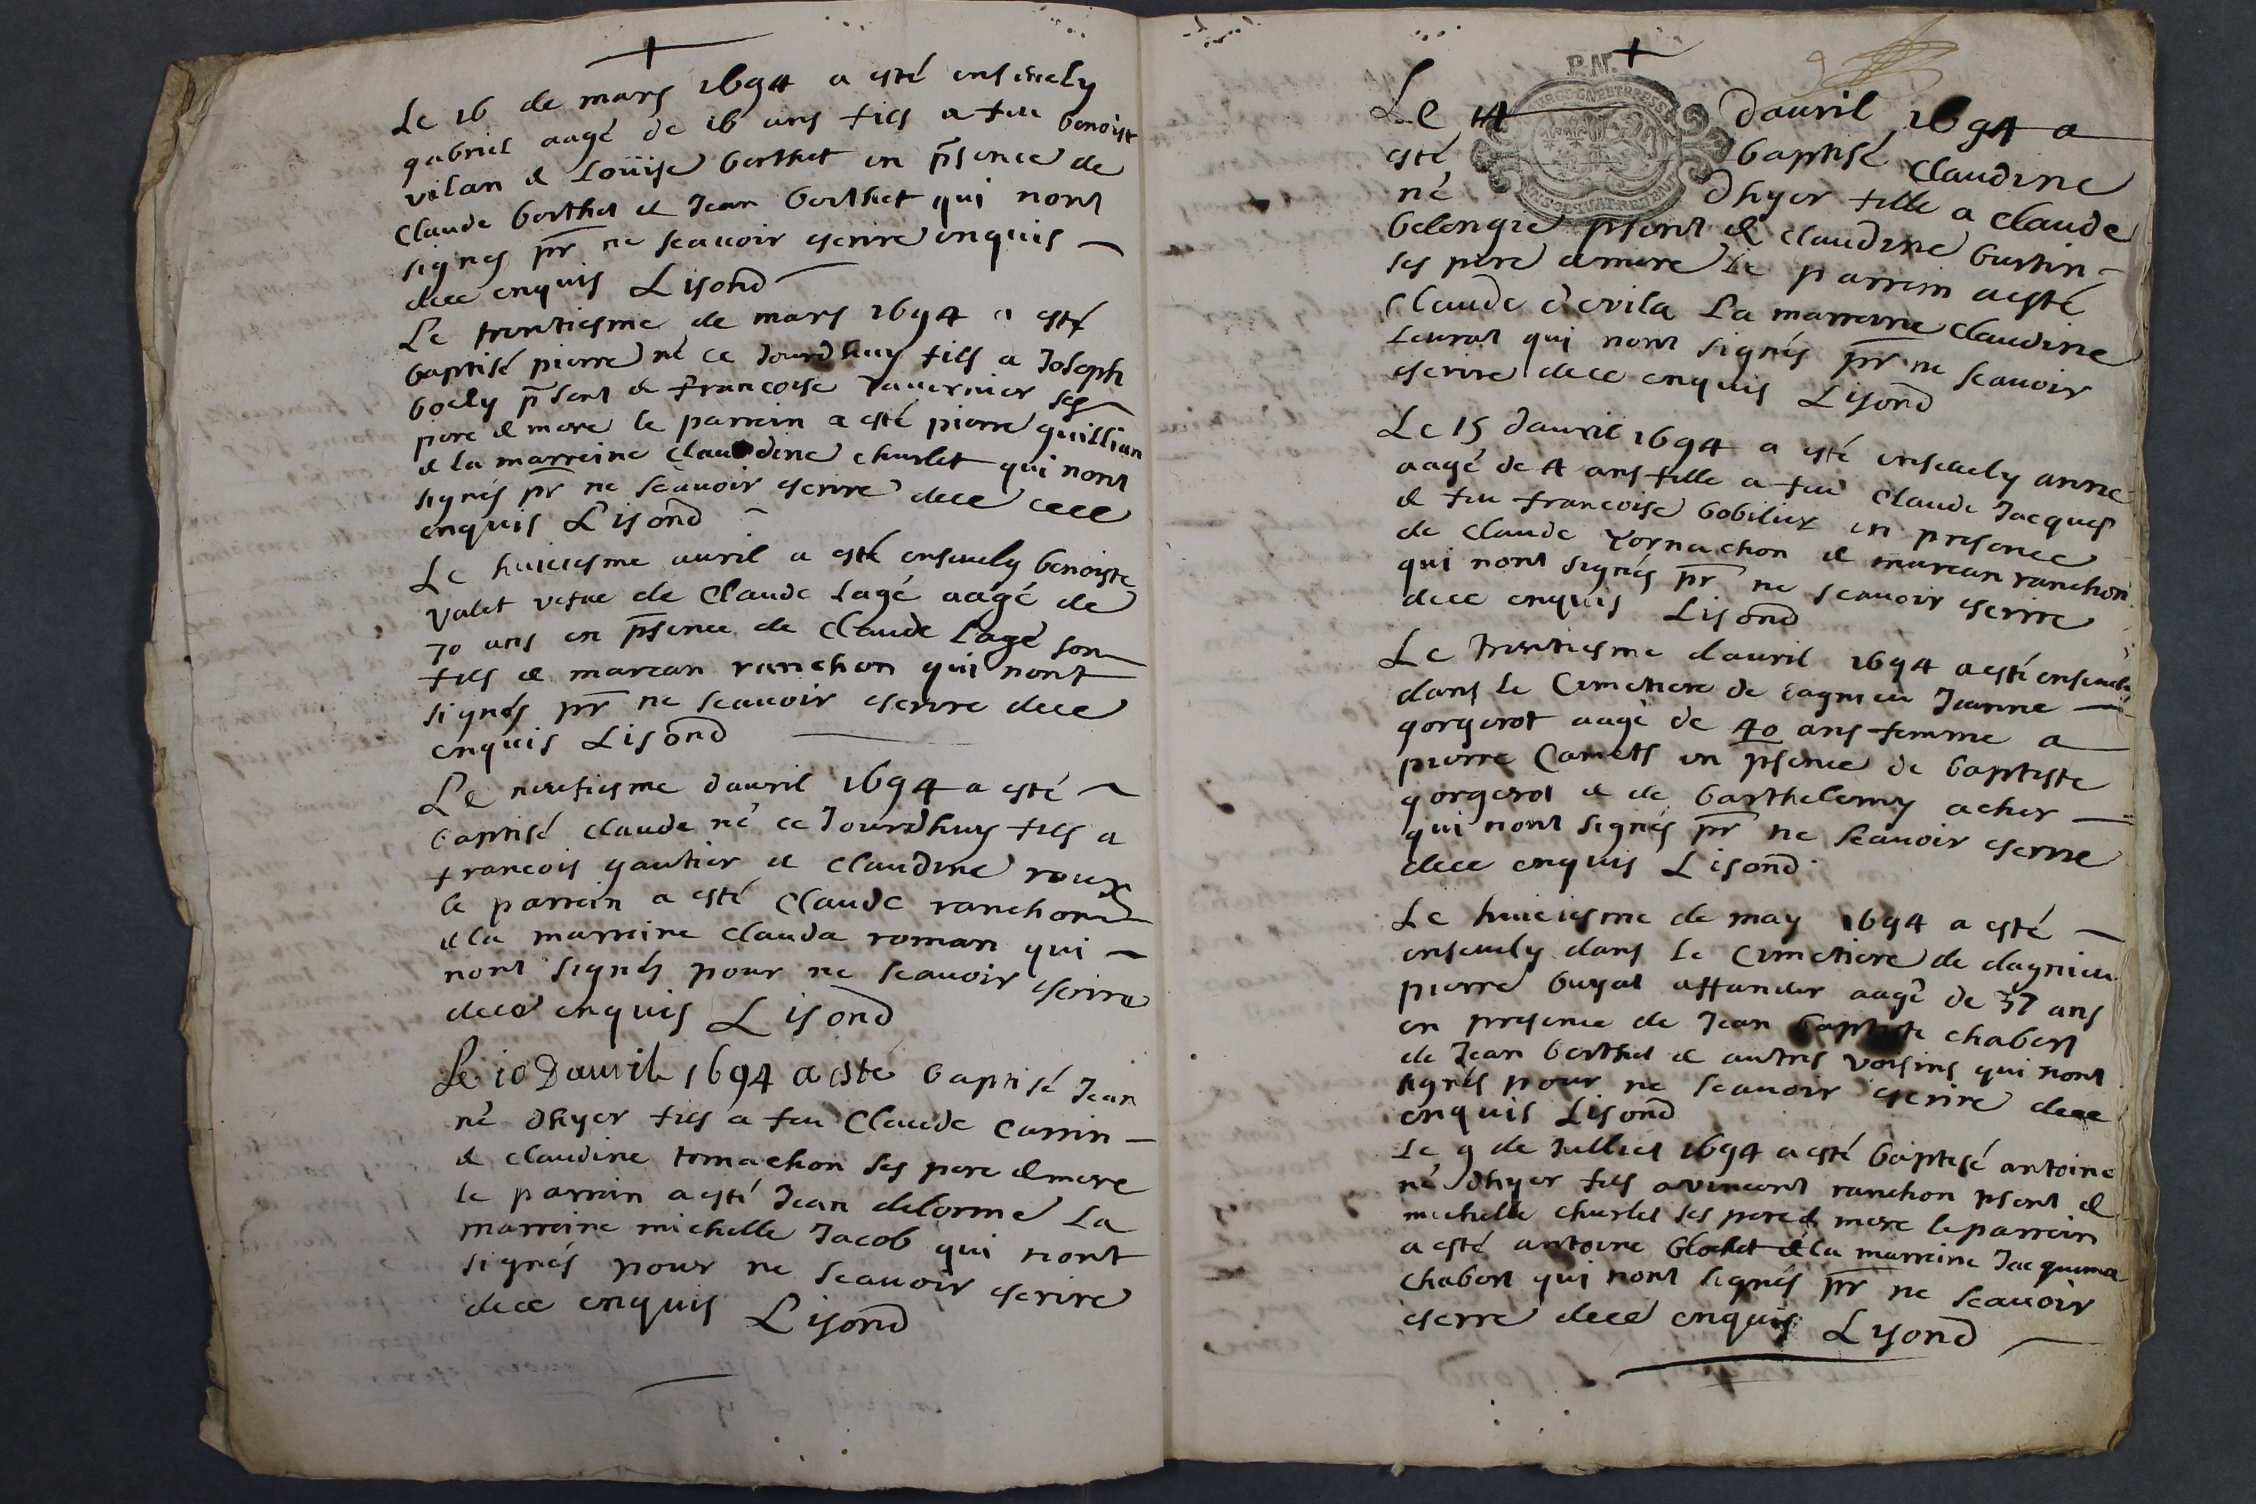 Le 16 de mars 1694 a esté ensevely
gabriel aagé de 16 ans fils a feu benoist
vilan & Loüise berthet en psence de
Claude berthet & Jean berthet qui nont
signes pr ne scavoir escrire enquis
dece enquis Lisond
Le trentiesme de mars 1694 a esté
baptisé pierre né ce Jourdhuy fils a Joseph
boely psent & francoise Tavernier ses
pere & mere le parrein a esté pierre guillian
& la marreine Claudine churlet qui nont
signés pr ne scavoir escrire dece cece
enquis Lisond
Le huiciesme avril a esté ensevely benoiste
valet vefve de Claude Lagé aagé de
70 ans en psence de Claude Lagé son
fils & marcan ranchon qui nont
signés pr ne scavoir escrire dece
enquis Lisond
Le neufiesme davril 1694 a esté
baptisé claude né ce Jourdhuy fils a
francois gautier & Claudine roux
le parrein a esté Claude ranchon
& la marreine clauda roman qui
nont signés pour ne scavoir escrire
dece enquis Lisond
Le 10 Davril 1694 a esté baptisé Jean
né dhyer fils a feu Claude Carrin
& claudine tornachon ses pere & mere
le parrein a esté Jean delorme La
marreine michelle Jacob qui nont
signés pour ne scavoir escrire
dece enquis Lisond
P.N.
Le 14 davril 1694 a
esté baptisé Claudine
né dhyer fille a Claude
belengie psent & claudine burtin
ses pere & mere le parrein a esté
Claude devila La marreine Claudine
Leurat qui nont signés pr ne scavoir
escrire dece enquis Lisond
Le 15 davril 1694 a esté ensevely anne
aagé de 4 ans fille a feu Claude Jacques
& feu francoise bobilier en presence
de Claude Tornachon & marcan ranchon
qui nont signés pr ne scavoir escrire
dece enquis Lisond
Le trentiesme davril 1694 a esté ensevely
dans le Cimetiere de dagnieu Jeanne
gorgerot aagé de 40 ans femme a
pierre Camets en psence de baptiste
gorgerot & de barthelemy acher
qui nont signés pr ne scavoir escrire
dece enquis Lisond
Le huiciesme de may 1694 a esté
ensevely dans le Cimetiere de dagnieu
pierre buyat affaneur aagé de 37 ans
en presence de Jean baptiste chabert
de Jean berthet & autres voisins qui nont
signés pour ne scavoir escrire dece
enquis Lisond
Le 9 de Julliet 1694 a esté baptisé antoine
né dhyer fils a vincent ranchon psent &
michelle churlet ses pere & mere le parrein
a esté antoine blochet & la marreine Jacquema
chabert qui nont signés pr ne scavoir
escrire dece enquis Lisond